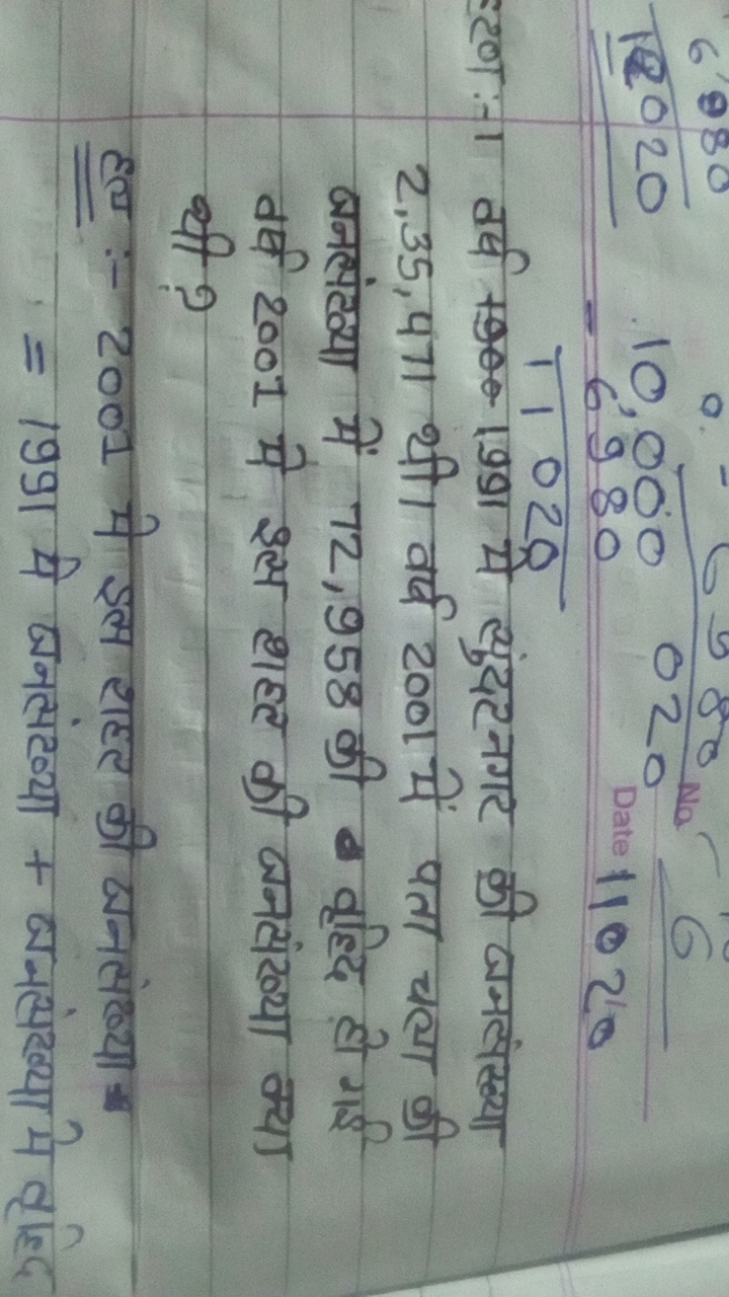 6980
1020
10,000
- 6980
020
No.
Date 11020
11020
वर्ष 1900 1991 में सुंदरनगर की जनसंख्या
2,35,471 थी। वर्ष 2001 में पता चला की
जनसंख्या में 72,958 की वृद्धि हो गई
वर्ष 2001 मे इस शहर की जनसंख्या क्या
थी ?
हल :- 2001 मे इस शहर की जनसंख्या
= 1991 मे जनसंख्या + जनसंख्या मे वृद्धि